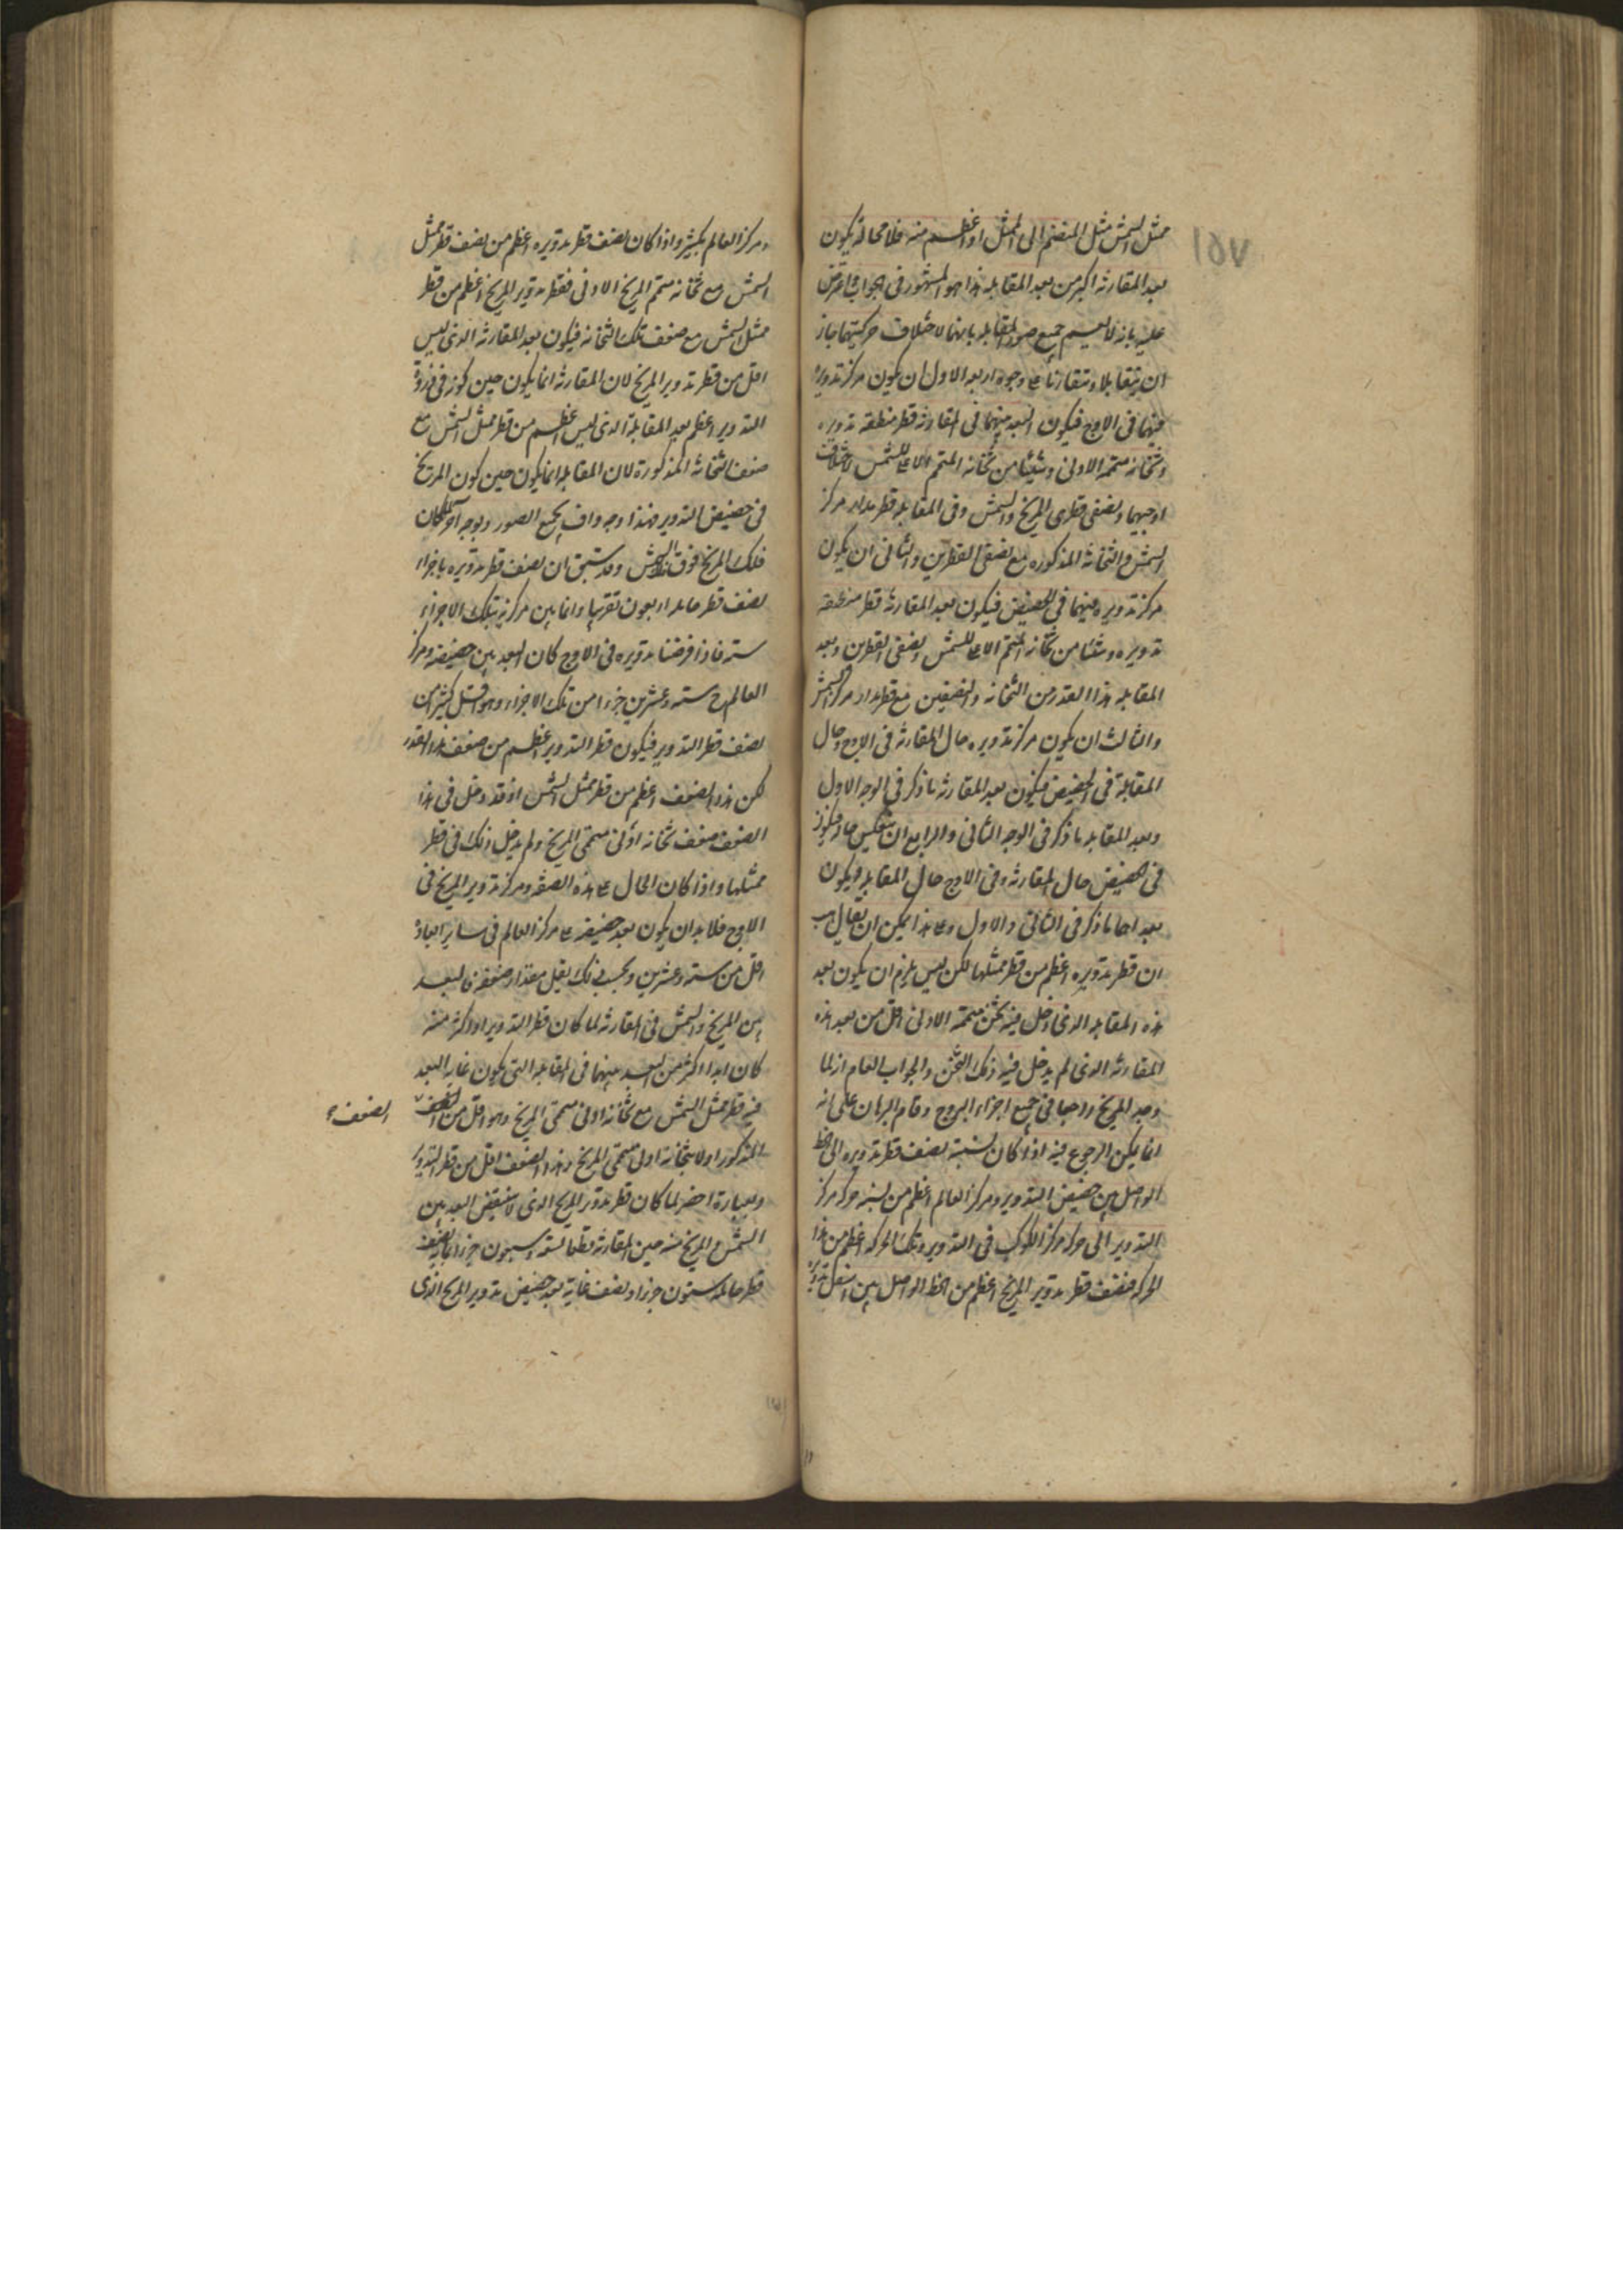 ٧٥١
ممثل الشمس مثل المنضم الى الممثل او اعظم منه فلا محالة يكون
بعد المقارنة اكبر من بعد المقابلة هذا هو المشهور في الجواب واعترض
عليه بانه لا يعم جميع صور المقابلة بانهما لاختلاف حركتيهما جاز
ان يتقابلا وتقارنا على وجوه اربعة الاول ان يكون مركز تدويره
فيهما في الاوج فيكون البعد بينهما في المقارنة قطر منطقة تدويره
وثخانة متممه الاولى وشيئا من ثخانة المتمم الاعلى للشمس لاختلاف
اوجيهما ونصفي قطري المريخ والشمس وفي المقابلة قطر مدار مركز
الشمس والثخانة المذكورة مع نصفي القطرين والثاني ان يكون
مركز تدويره فيهما في الحضيض فيكون بعد المقارنة قطر منطقة
تدويره وشيئا من ثخانة المتمم الاعلى للشمس ونصفي القطرين وبعد
المقابلة هذا القدر من الثخانة والنصفين مع قطر مدار مركز الشمس
والثالث ان يكون مركز تدويره حال المقارنة في الاوج وحال
المقابلة في الحضيض فيكون بعد المقارنة ما ذكر في الوجه الاول
وبعد المقابلة ما ذكر في الوجه الثاني والرابع ان ينعكس حاله فيكون
في الحضيض حال المقارنة وفي الاوج حال المقابلة ويكون
بعداهما ما ذكر في الثاني والاول وعلى هذا يمكن ان يقال هب
ان قطر تدويره اعظم من قطر ممثلها لكن ليس يلزم ان يكون بعد
هذه المقابلة الذي دخل فيه ثخن متممه الاولى اقل من بعد هذه
المقارنة الذي لم يدخل فيه ذلك الثخن والجواب العام انه لما
وجد المريخ راجعا في جميع اجزاء البروج وقام البرهان على انه
انما يمكن الرجوع فيه اذا كان نسبة نصف قطر تدويره الى الخط
الواصل بين حضيض التدوير ومركز العالم اعظم من نسبة حركة مركز
التدوير الى حركة مركز الكوكب في التدوير وتلك الحركة اعظم من هذه
الحركة فنصف قطر تدوير المريخ اعظم من الخط الواصل بين اسفل تدويره
ومركز العالم بكثير واذا كان نصف قطر تدويره اعظم من نصف قطر ممثل
الشمس مع ثخانة متمم المريخ الاولى فقطر تدوير المريخ اعظم من قطر
ممثل الشمس مع ضعف تلك الثخانة فيكون بعد المقارنة الذي ليس
اقل من قطر تدوير المريخ لان المقارنة انما يكون حين كونه في ذروة
التدوير اعظم بعد المقابلة الذي ليس اعظم من قطر ممثل الشمس مع
ضعف الثخانة المذكورة لان المقابلة انما يكون حين كون المريخ
في حضيض التدوير فهذا وجه واف بجميع الصور وبوجه آخر لما كان
فلك المريخ فوق فلك الشمس وقد سبق ان نصف قطر تدويره باجزاء
نصف قطر حامله اربعون تقريبا وما بين مركزيه بتلك الاجزاء
ستة فاذا فرضنا تدويره في الاوج كان البعد بين حضيضه ومركز
العالم ح ستة وعشرين جزءا من تلك الاجزاء وهو اقل بكثير من
نصف قطر التدوير فيكون قطر التدوير اعظم من ضعف هذا القدر
لكن هذا الضعف اعظم من قطر ممثل الشمس اذ قد دخل في هذا
الضعف ضعف ثخانة اولى متممي المريخ ولم يدخل ذلك في قطر
ممثلها واذا كان الحال على هذه الصفة ومركز تدوير المريخ في
الاوج فلا بد ان يكون بعد حضيضه على مركز العالم في ساير ابعاده
اقل من ستة وعشرين وبحسب ذلك يقل مقدار ضعفه فالبعد
بين المريخ والشمس في المقارنة لما كان قطر التدوير او اكثر منه
كان ابدا اكثر من البعد بينهما في المقابلة التي يكون غاية البعد
فيه قطر ممثل الشمس مع ثخانة اولى متممي المريخ وهو اقل من الضعف
المذكور اولا بثخانة اولى متممي المريخ وهذا الضعف اقل من قطر التدوير
وبعبارة اخصر لما كان قطر تدوير المريخ الذي لا ينقص البعد بين
الشمس والمريخ منه حين المقارنة قطعا تسعة وسبعون جزءا بما به نصف
قطر حامله ستون جزءا ونصف غاية بعد حضيض تدوير المريخ الذي
الضعف